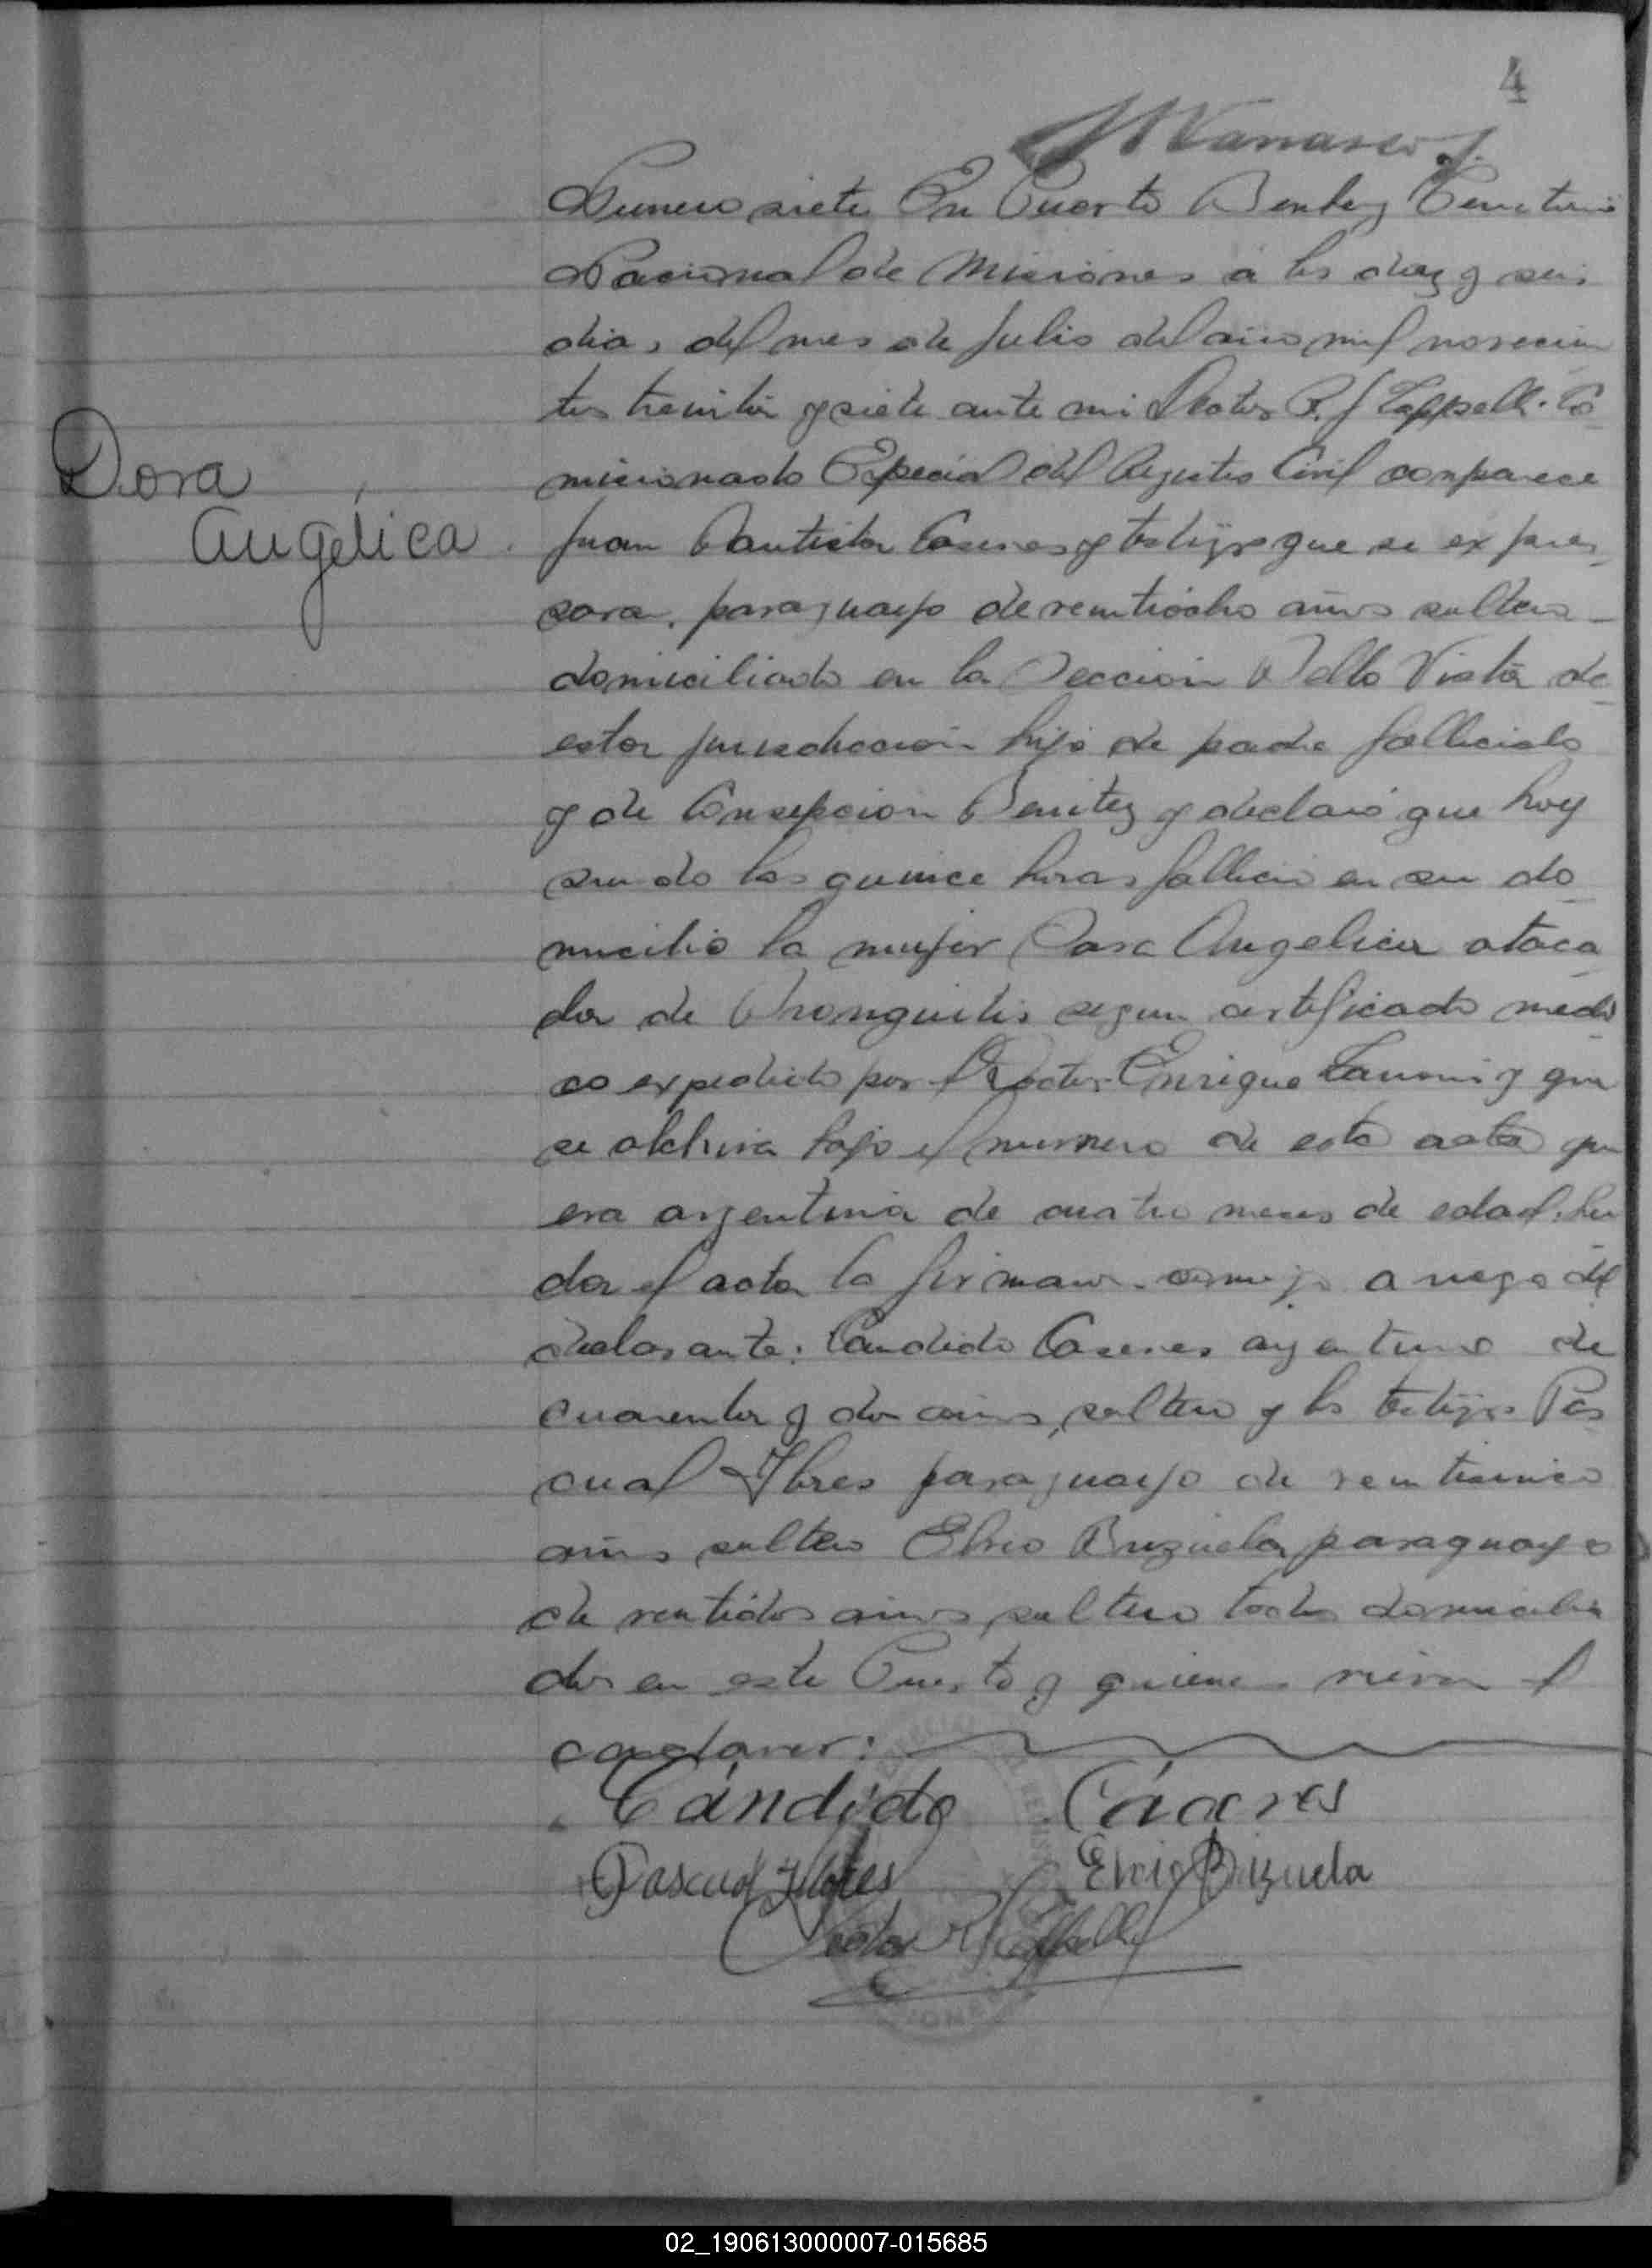 4
Numero siete En Puerto Bemberg Territorio
Nacional de Misiones a los diez y seis
dias del mes de Julio del año mil novecien
tos treinta y siete ante mi Nestor R. J. Co
misionado Especial del Registro Civil comparece
Dora
Angélica
Juan Bautista Caseres y testigos que se expre
sara, paraguayo de veintiocho años soltero
domiciliado en la Seccion Bella Vista de
esta jurisdiccion hijo de padre fallecido
y de Consepcion Benitez y declaró que hoy
siendo las quince horas fallecio en su do
micilio la mujer Dora Angelica ataca
da de Bronquitis segun certificado medi
co expedido por el Doctor Enrique y que
se archiva bajo el numero de esta acta que
era argentina de cuatro meses de edad. Lei
da el acta la firman conmigo a ruego del
declarante: Candido Caseres argentino de
cuarenta y dos años, soltero y los testigos Pas
cual Flores paraguayo de veinticinco
años soltero Elvio Brizuela paraguayo
de ventidos años soltero todos domicilia
dos en este Puerto y quienes vieron el
cadaver:
Cándido Cáceres
Pascual Flores Elvio Brizuela
Nestor R
02_190613000007-015685